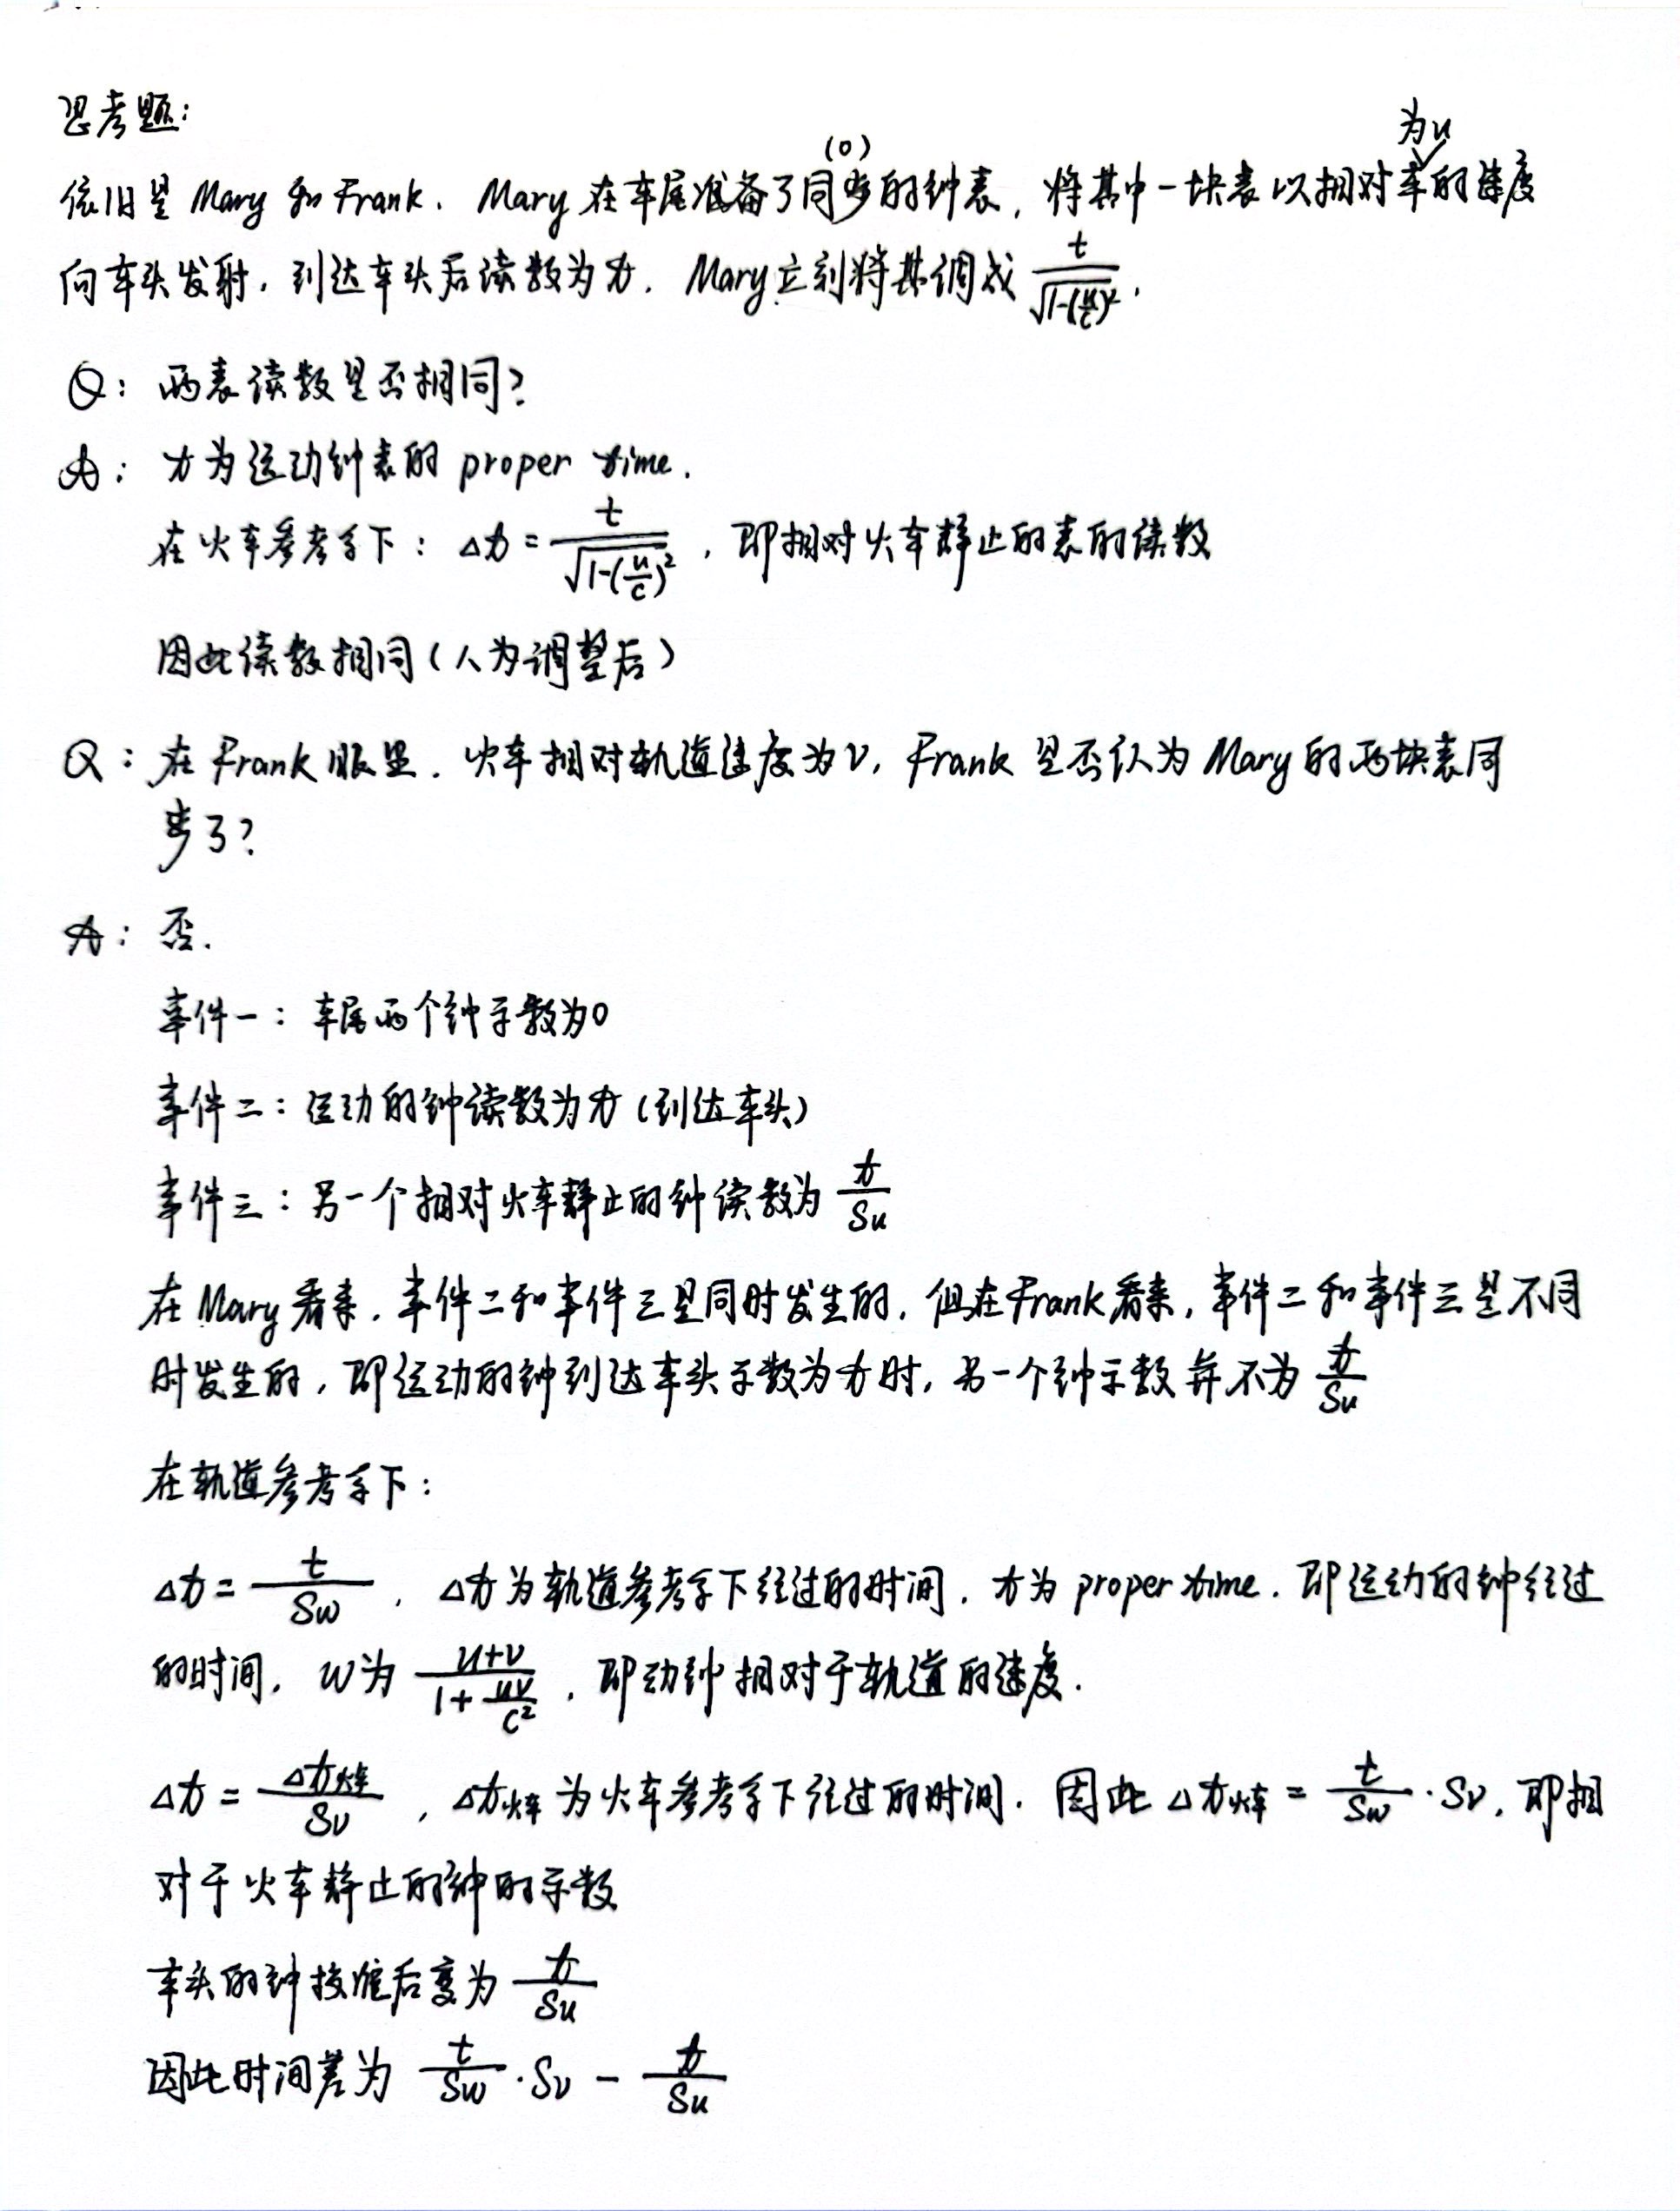 思考题:
(0) 为u
依旧是 Mary 和 Frank. Mary 在车尾准备了同步的钟表, 将其中一块表以相对车的速度
向车头发射, 到达车头后读数为t. Mary立刻将其调成 t/√(1-(u/c)²).
Q: 两表读数是否相同?
A: t为运动钟表的 proper time.
在火车参考系下: Δt = t/√(1-(u/c)²), 即相对火车静止的表的读数
因此读数相同(人为调整后)
Q: 在 Frank 眼里. 火车相对轨道速度为v, Frank 是否认为 Mary 的两块表同
步了?
A: 否.
事件一: 车尾两个钟示数为0
事件二: 运动的钟读数为t (到达车头)
事件三: 另一个相对火车静止的钟读数为 t/Su
在Mary看来, 事件二和事件三是同时发生的, 但在Frank看来, 事件二和事件三是不同
时发生的, 即运动的钟到达车头示数为t时, 另一个钟示数并不为 t/Su
在轨道参考系下:
Δt = t/Sw, Δt为轨道参考系下经过的时间, t为 proper time. 即运动的钟经过
的时间, w为 (u+v)/(1+uv/c²), 即动钟相对于轨道的速度.
Δt = Δt火车/Sv, Δt火车为火车参考系下经过的时间. 因此 Δt火车 = t/Sw·Sv, 即相
对于火车静止的钟的示数
车头的钟校准后变为 t/Su
因此时间差为 t/Sw·Sv - t/Su